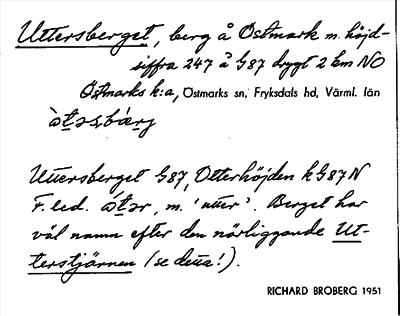 Uttersberget, berg å Östmark m. höjd-
siffra 247 å G87 drygt 2 km NO
Östmarks k:a, Östmarks sn. Fryksdals hd, Värml. län
Uttersberget G87, Otterhöjden k G87 N
F. led. m. 'utter'. Berget har
väl namn efter den närliggande Ut-
terstjärnen (se detta!).
RICHARD BROBERG 1951